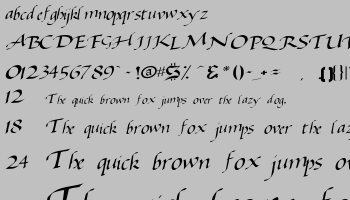 abcdefghijklmnopqrstuvwxyz
ABCDEFGHIJJKLMNOPQRSTU
0123456789
12 The quick brown fox jumps over the lazy dog.
18 The quick brown fox jumps over the laz
24 The quick brown fox jumps ov